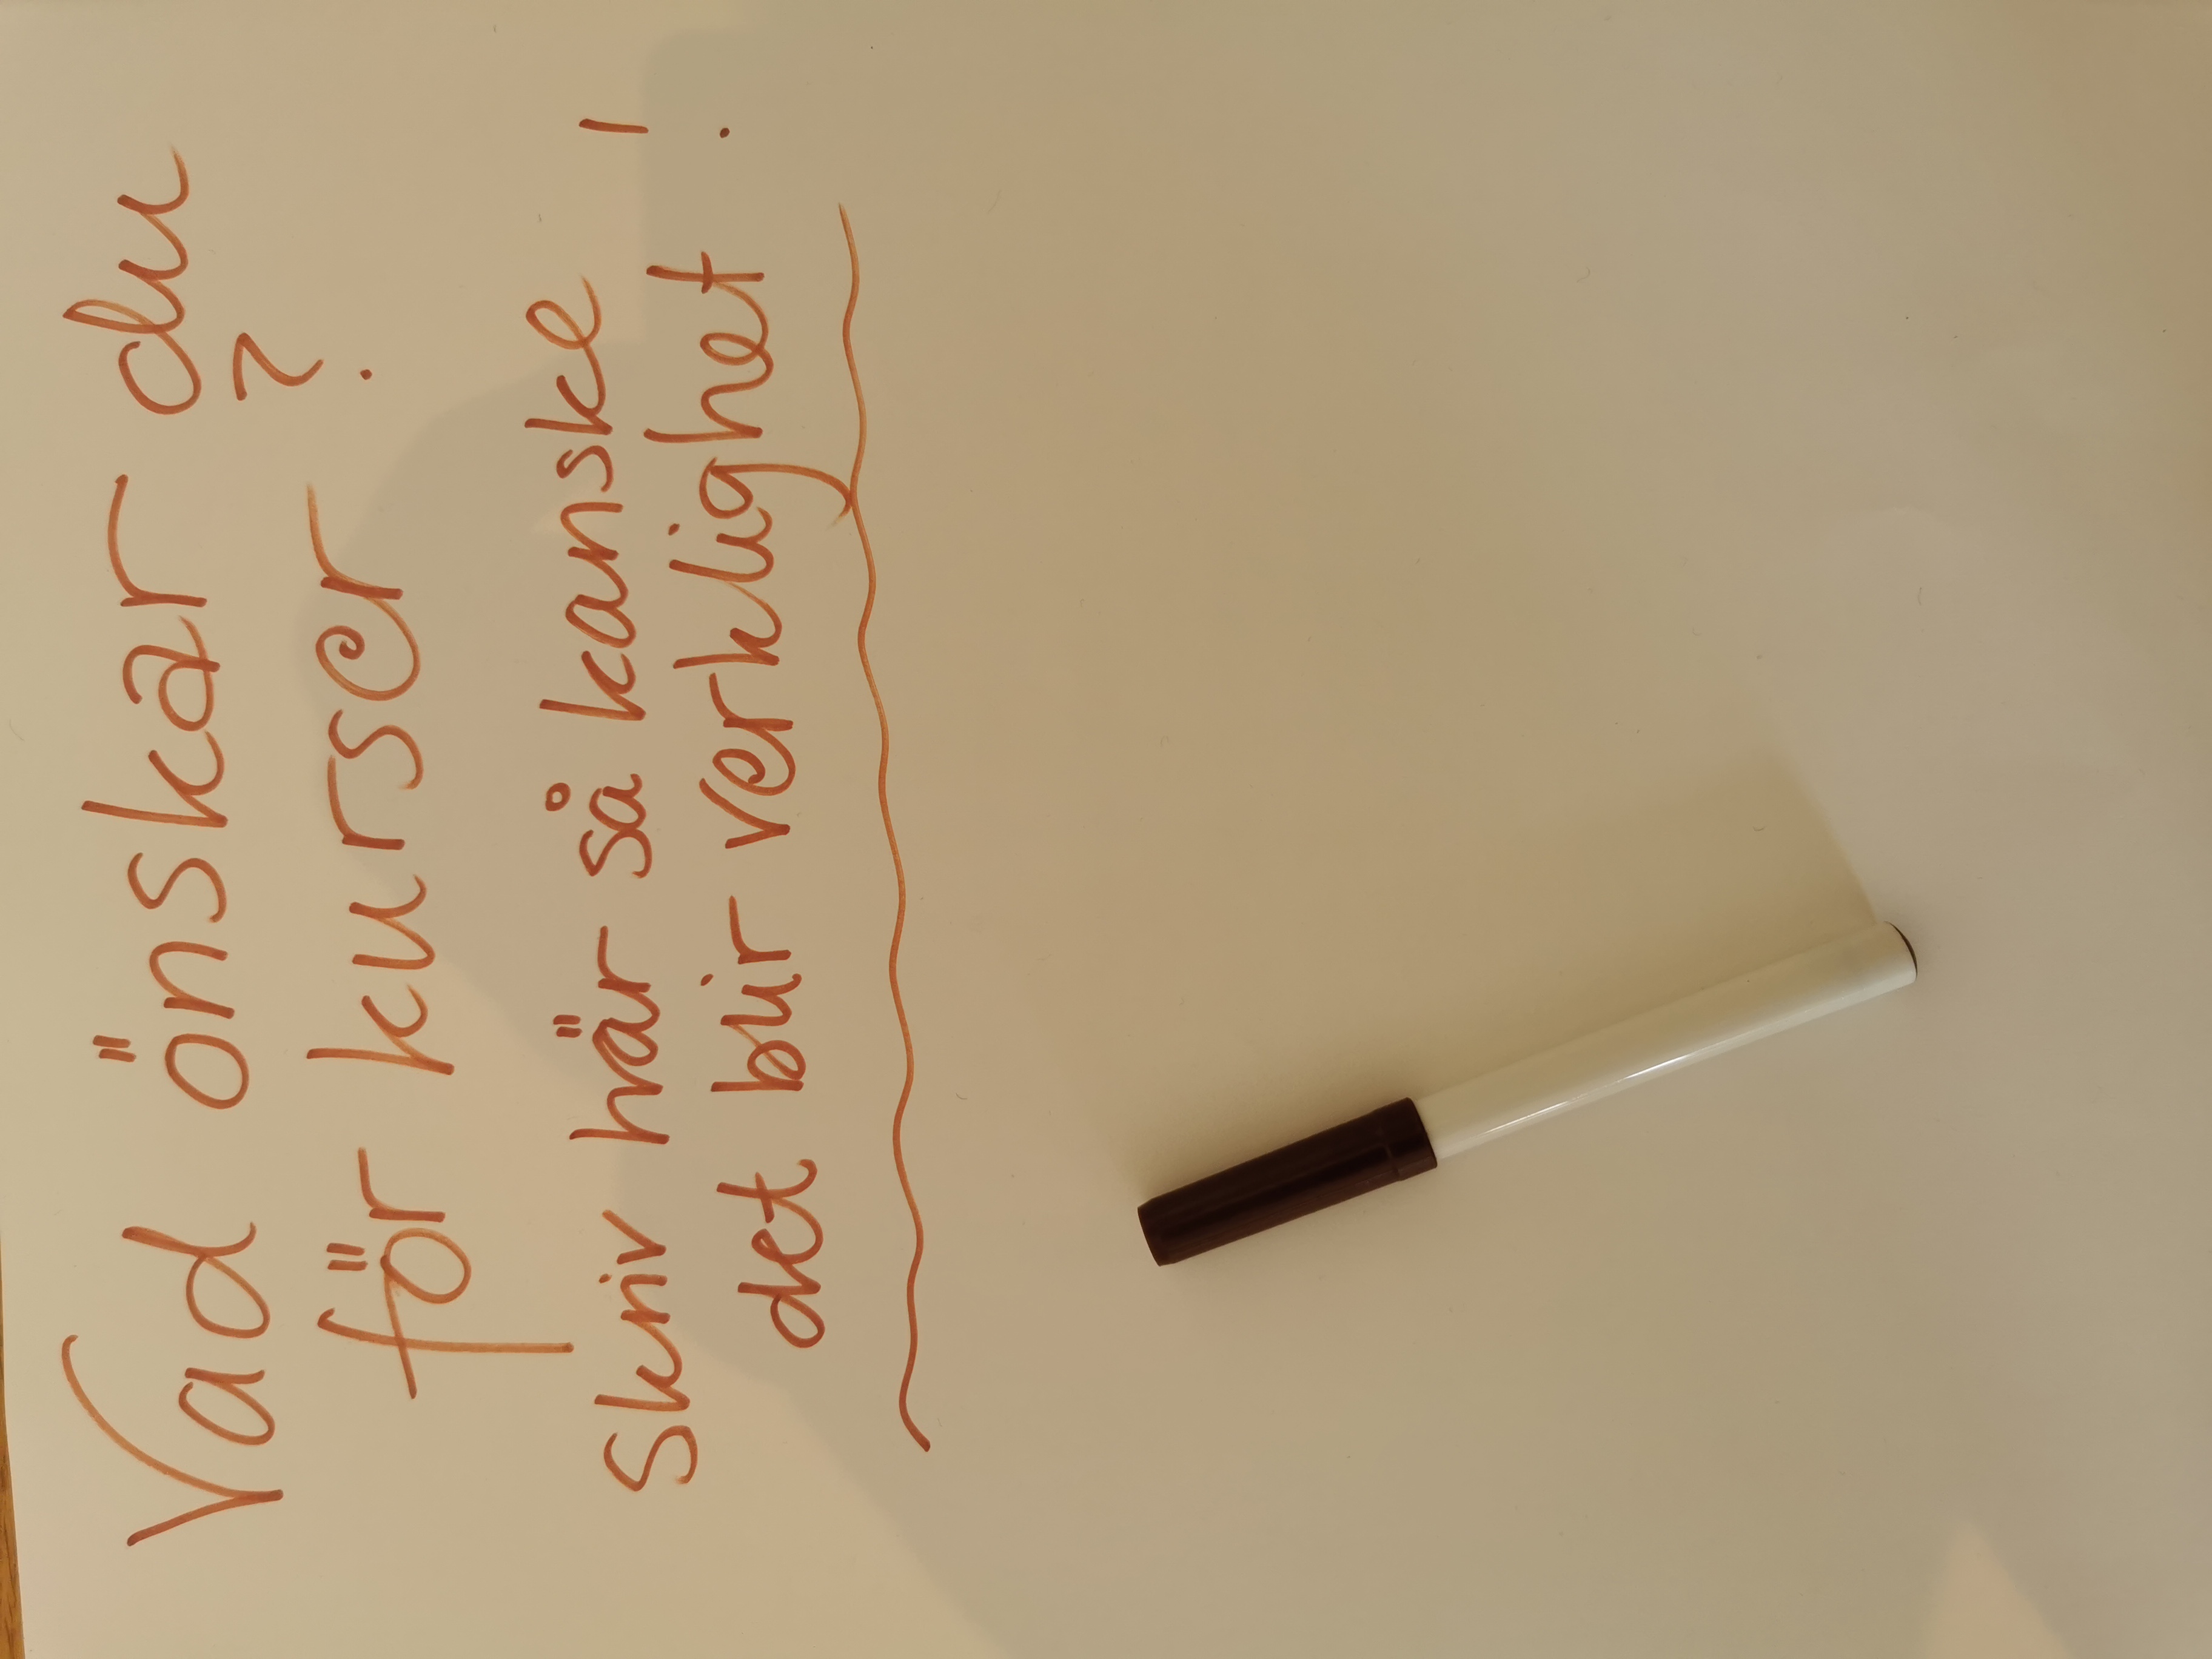 Vad önskar du
för kurser ?
Skriv här så kanske
det blir verklighet !